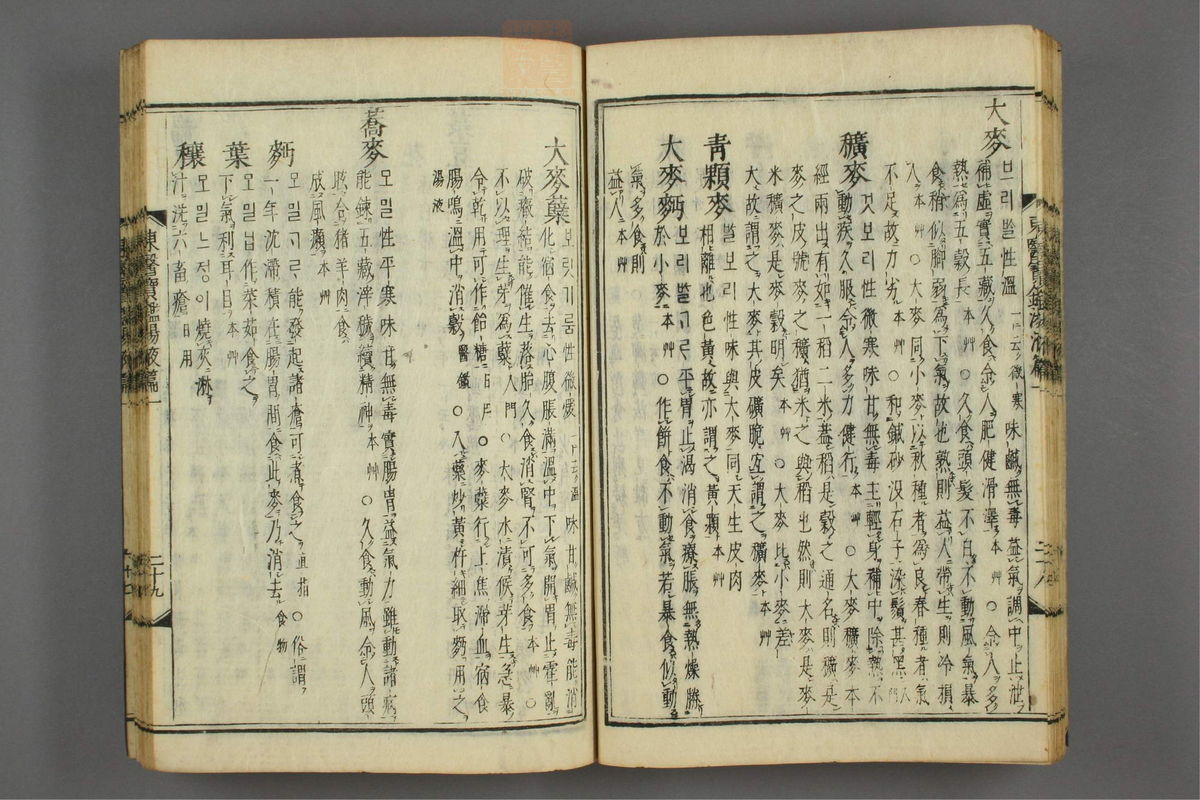 大麥 보리ᄡᆞᆯ性溫 一云微寒 味鹹無毒益氣調中止泄
補虛實五藏久食令人肥健滑澤 本艸 ○久食頭髮不白不動風氣暴
食稍似脚弱爲下氣故也熟則益人帶生則冷損
人 本艸 ○大麥同小麥以秋種者爲良春種者氣
不足故力劣 本艸 ○和鍼砂没石子染鬚甚黑 入門
穬麥 것보리性微寒味甘無毒主輕身補中除熱不
動疾久服令人多力健行 本艸 ○大麥穬麥本
經兩出有如一稻二米蓋稻是穀之通名則穬是
麥之皮號麥之穬猶米之與稻也然則大麥是麥
米穬麥是麥穀明矣 本艸 ○大麥比小麥差
大故謂之大麥其皮礦脆宜謂之穬麥 本艸
靑顆麥 ᄡᆞᆯ보리性味與大麥同天生皮肉
相離也色黃故亦謂之黃顆 本艸
大麥麪 보리ᄡᆞᆯᄀᆞᄅᆞ平胃止渴消食療脹無熱燥勝
於小麥 本艸 ○作餠食不動氣若暴食似動
氣多食則
益人 本艸
大麥蘖 보릿기름性微煖 一云溫 味甘鹹無毒能消
化宿食去心腹脹滿溫中下氣開胃止霍亂
破癥結能催生落胎久食消腎不可多食 本艸 ○
不以理生芽爲蘖 入門 ○大麥水漬候芽生急暴
令乾用可作飴糖 日用 ○麥蘖行上焦滯血宿食
腸鳴溫中消穀 醫鑑 ○入藥炒黃杵細取麪用之
湯液
蕎麥 모밀性平寒味甘無毒實腸胃益氣力雖動諸病
能鍊五藏滓穢續精神 本艸 ○久食動風令人頭
眩合猪羊肉食
成風癩 本艸
麪 모밀ᄀᆞᄅᆞ能發起諸瘡可煮食之 直指 ○俗謂
一年沈滯積在腸胃間食此麥乃消去 食物
葉 모밀닙作菜茹食之
下氣利耳目 本艸
穰 모밀느졍이燒灰淋
汁洗六畜瘡 日用
東醫寶鑑湯液篇一
二十九